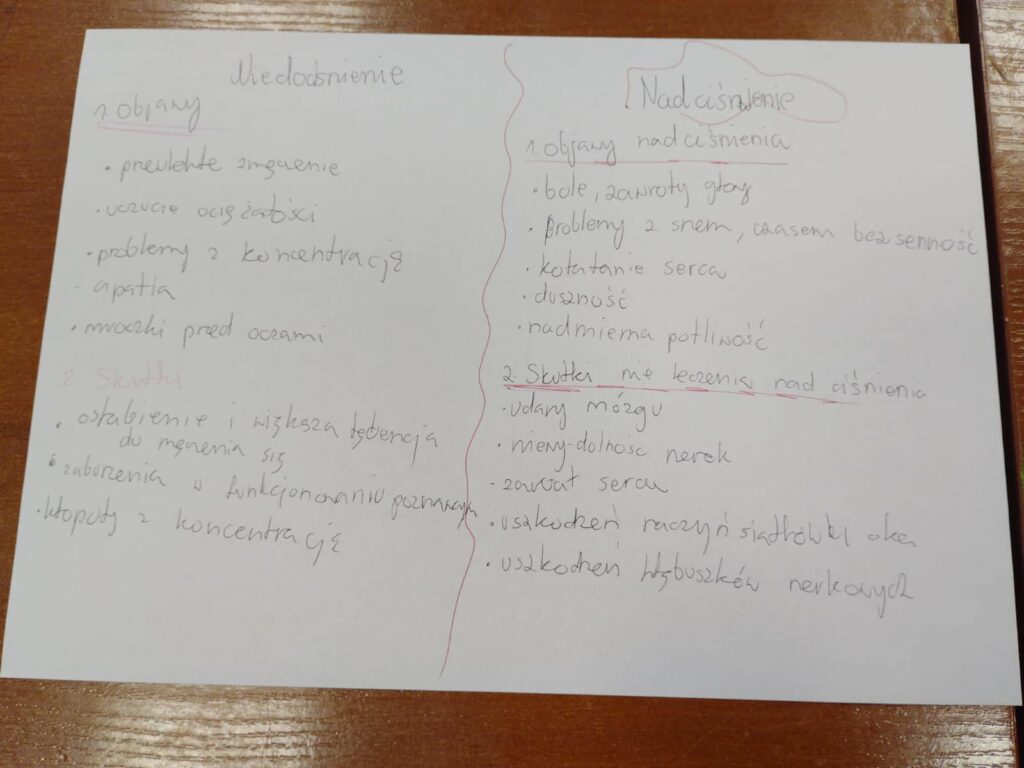 Niedociśnienie
1. Objawy
• przewlekłe zmęczenie
• uczucie ociężałości
• problemy z koncentracją
• apatia
• mroczki przed oczami
2. Skutki
• osłabienie i większa tędencja
do męczenia się
• zaburzenia w funkcjonowaniu poznawczym
• kłopoty z koncentracją
Nadciśnienie
1. Objawy nadciśnienia
• bóle, zawroty głowy
• problemy z snem, czasem bezsenność
• kołatanie serca
• duszność
• nadmierna potliwość
2. Skutki nie leczenia nad ciśnienia
• udary mózgu
• niewy-dolność nerek
• zawał serca
• uszkodzeń naczyń siatkówki oka
• uszkodzeń kłębuszków nerkowych